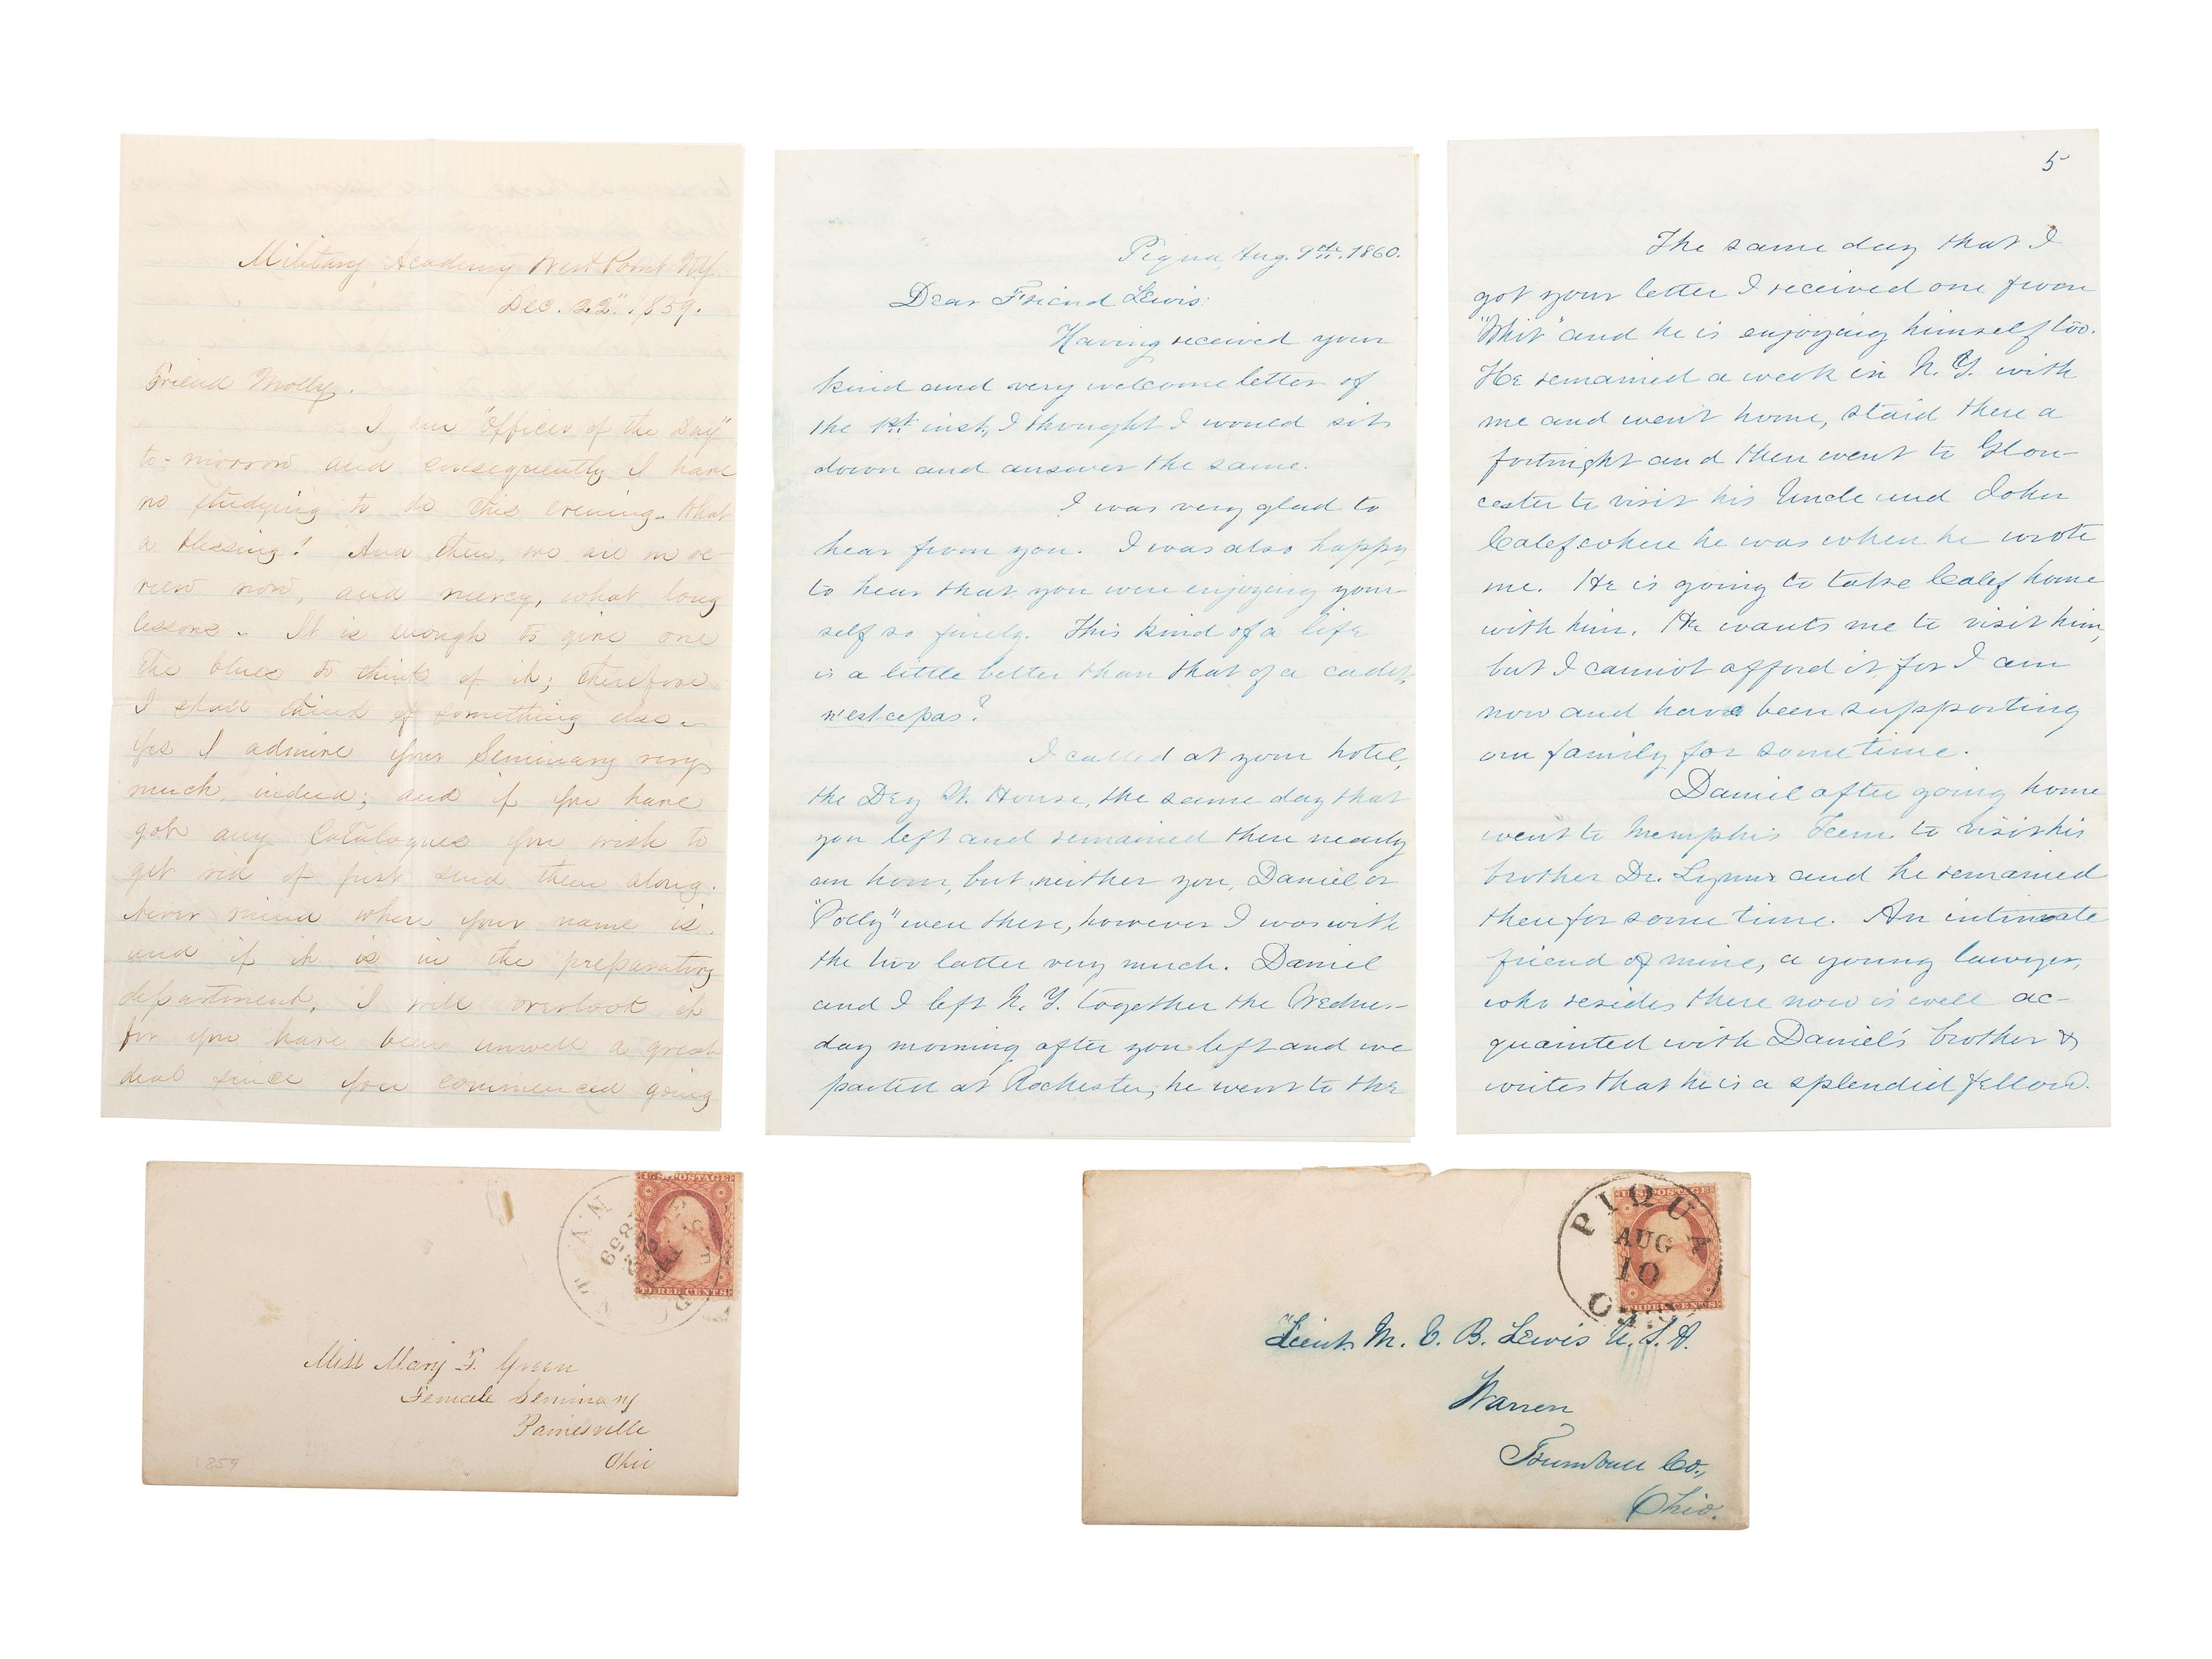 Military Academy West Point N.Y.
Dec. 22" 1859.
Friend Molly.
I am "Officer of the Day"
to-morrow and consequently I have
no studying to do this evening - that
a blessing! And then, we are on re-
view now, and mercy, what long
lessons - It is enough to give one
the blues to think of it; therefore
I shall think of something else -
Yes I admire your Seminary very
much, indeed; and if you have
got any Catalogues you wish to
get rid of just send them along.
Never mind where your name is.
and if it is in the preparatory
department, I will overlook it
for you have been unwell a great
deal since you commenced going
Piqua, Aug. 9th. 1860.
Dear Friend Lewis:
Having received your
kind and very welcome letter of
the 1st inst., I thought I would sit
down and answer the same.
I was very glad to
hear from you. I was also happy
to hear that you were enjoying your-
self so finely. This kind of a life
is a little better than that of a cadet,
n'est ce pas?
I called at your hotel,
the Dey St. House, the same day that
you left and remained there nearly
an hour, but neither you, Daniel or
"Polly" were there, however I was with
the two latter very much. Daniel
and I left N. Y. together the Wednes-
day morning after you left and we
parted at Rochester; he went to the
5
The same day that I
got your letter I received one from
"Whit" and he is enjoying himself too.
He remained a week in N. Y. with
me and went home, staid there a
fortnight and then went to Glou-
cester to visit his Uncle and John
Calef where he was when he wrote
me. He is going to take Calef home
with him. He wants me to visit him,
but I cannot afford it, for I am
now and have been supporting
our family for some time.
Daniel after going home
went to Memphis Tenn. to visit his
brother Dr. Lyman and he remained
there for some time. An intimate
friend of mine, a young lawyer,
who resides there now is well ac-
quainted with Daniel's brother &
writes that he is a splendid fellow.
U.S. POSTAGE
THREE CENTS
1859
Miss Mary F. Green
Female Seminary
Painesville
Ohio
1859
U.S. POSTAGE
THREE CENTS
PIQUA
AUG
10
Lieut. M. B. Lewis U.S.A.
Warren
Trumbull Co.,
Ohio.